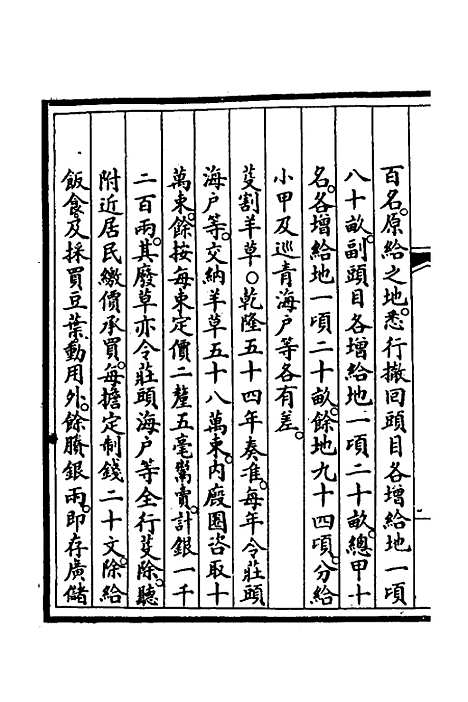 百名。原給之地。悉行撤回頭目各增給地一頃
八十畝。副頭目各增給地一頃二十畝。總甲十
名。各增給地一頃二十畝。餘地九十四頃。分給
小甲及巡青海戶等各有差。
芟割羊草○乾隆五十四年奏准。每年令莊頭
海戶等。交納羊草五十八萬束。內廄圈咨取十
萬束。餘按每束定價二釐五毫鬻賣。計銀一千
二百兩。其廢草亦令莊頭海戶等全行芟除。聽
附近居民繳價承買。每擔定制錢二十文。除給
飯食及採買豆葉動用外。餘賸銀兩。即存廣儲